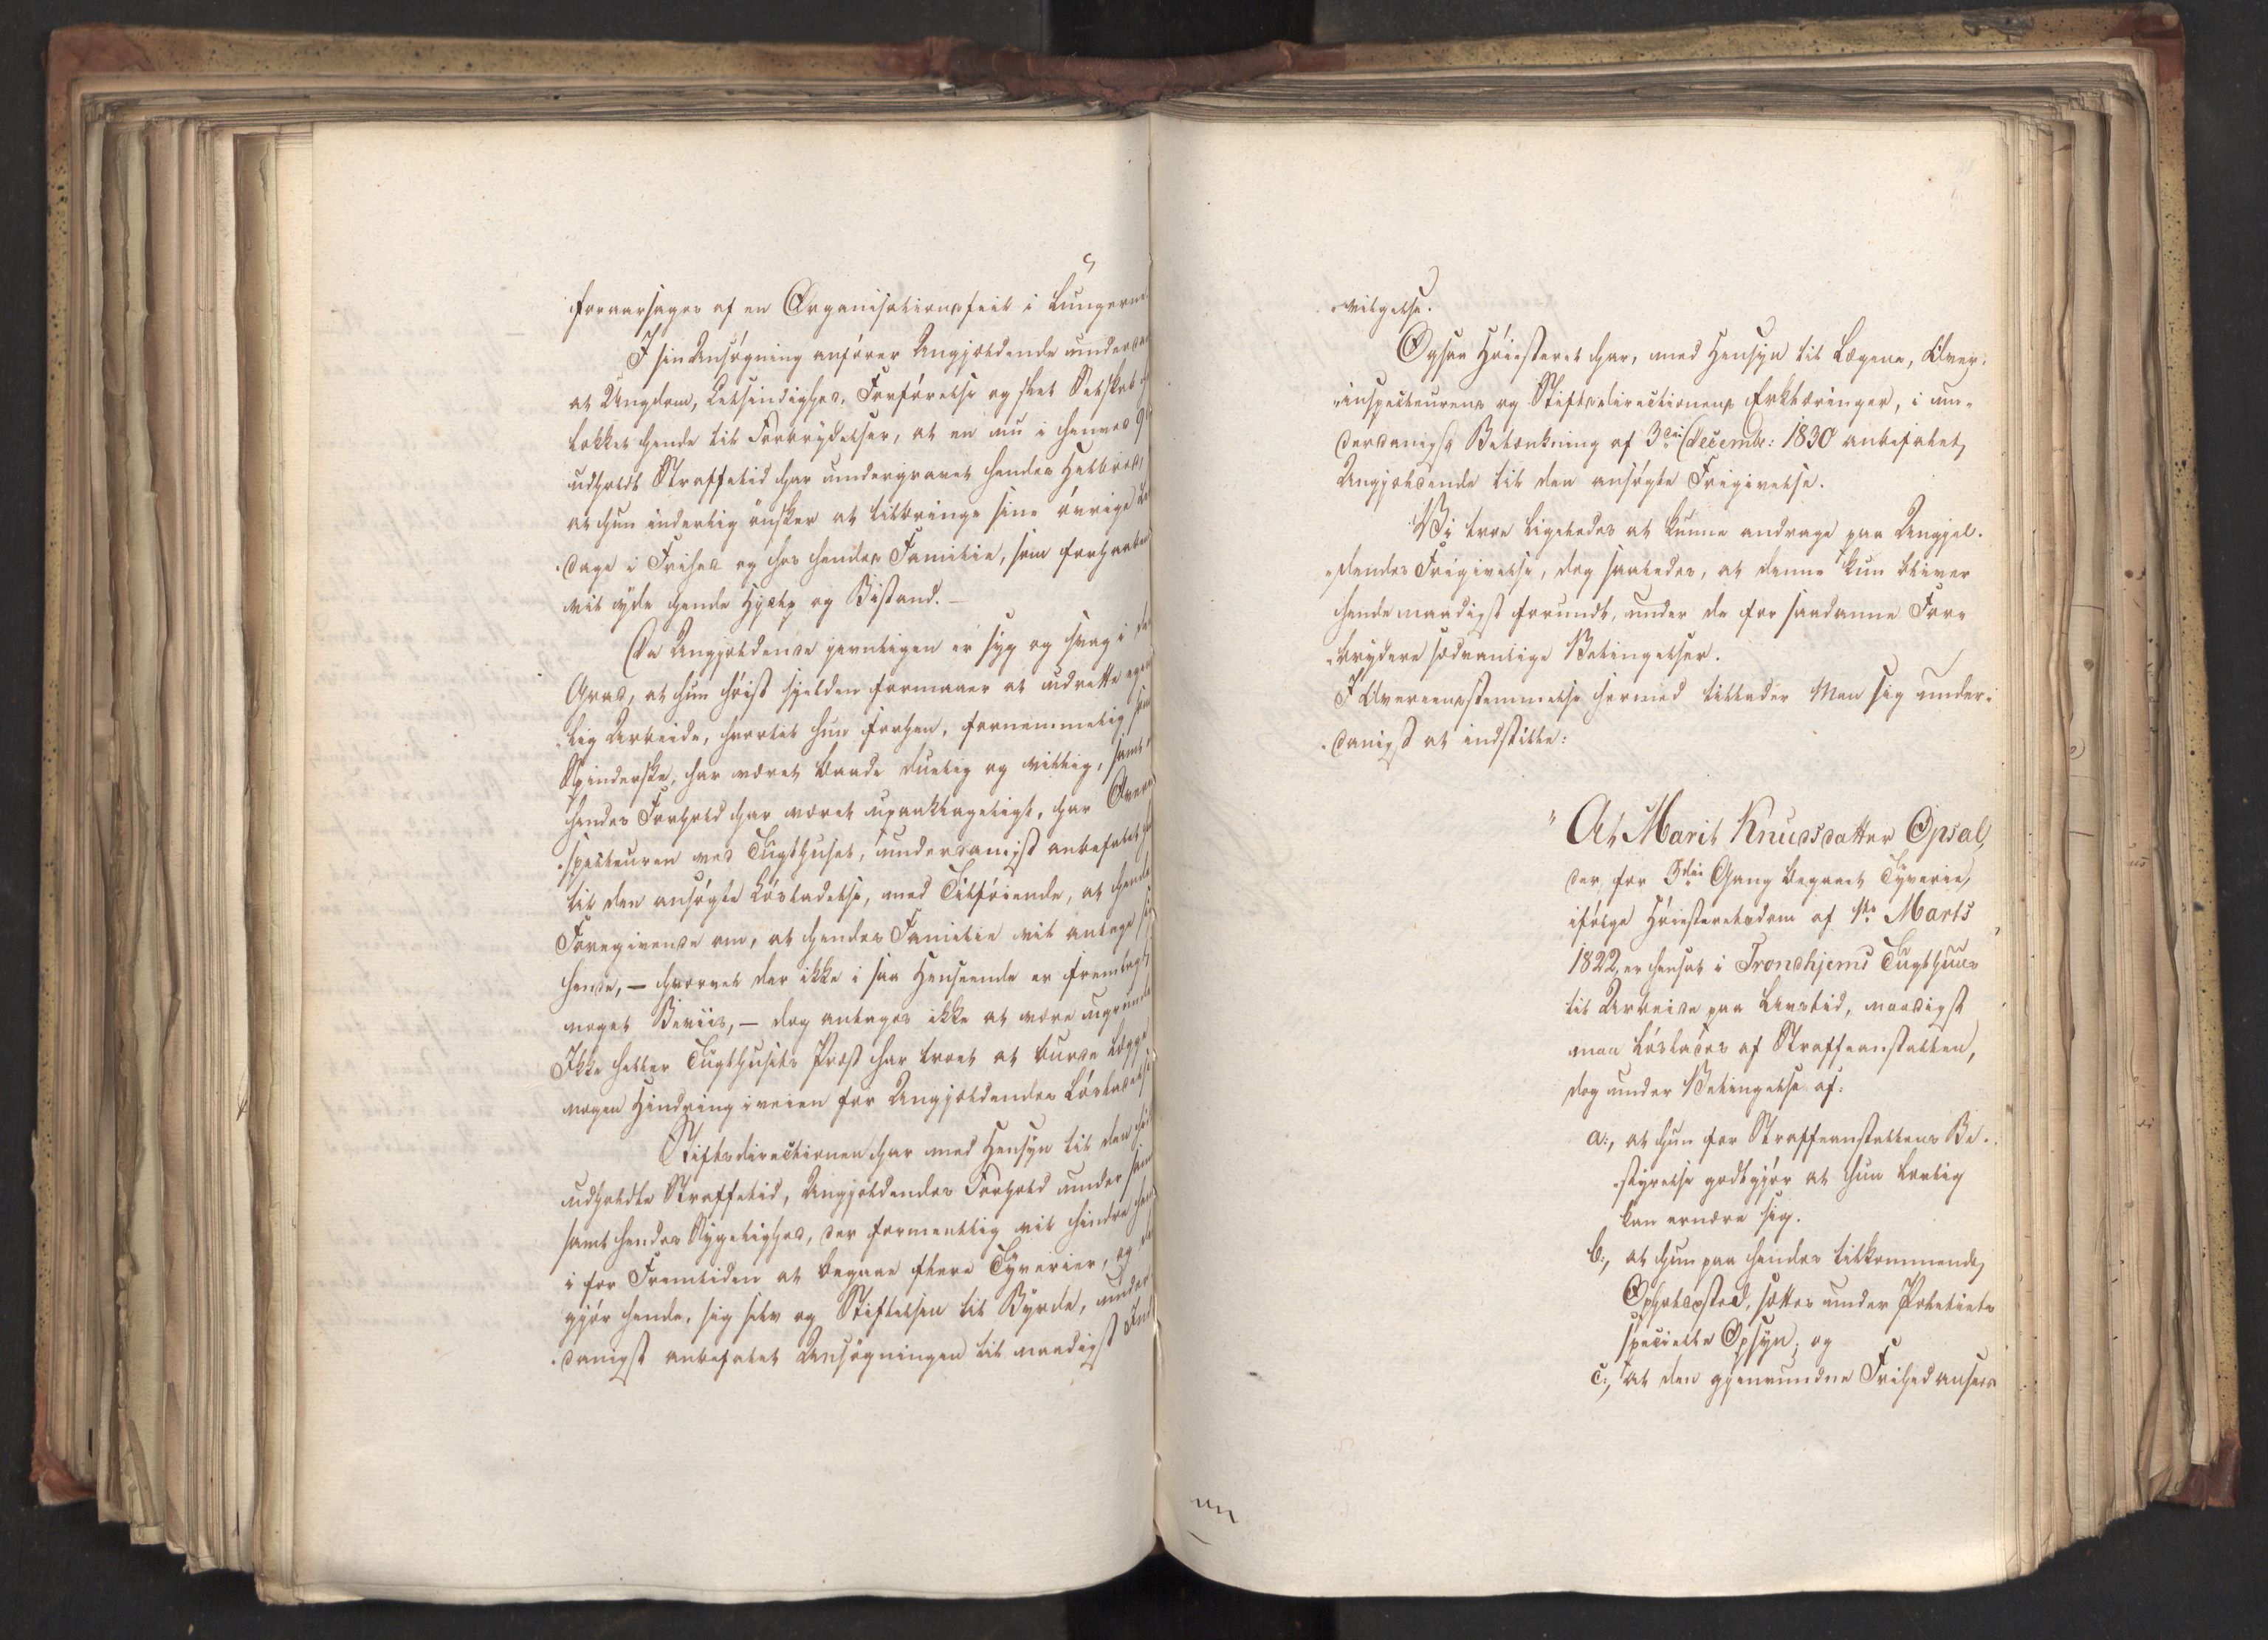 foraarsages af en Organisationsfeil i Lungerne
I sin Ansøgning anfører Angjældende underda
at Ungdom, Letsindighed, Forførelse og slet Selskab
lokket hende til Forbrydelser, at en nu i henved 9
udholdt Straffetid har undergravet hendes Helbred,
at hun inderlig ønsker at tilbringe sine øvrige Le
-dage i Frihed og hos hendes Familie, som forhaaben
vil yde hende Hjælp og Bistand. —
Da Angjældende jevnligen er syg og svag i den
Grad, at hun høist sjelden formaaer at udrette egen
-lig Arbeide, hvortil hun forhen, fornemmelig som
Spinderske, har været baade duelig og villig, samt
hendes Forhold har været upaaklageligt, har Overin
-specteuren ved Tugthuset, underdanigst anbefalet
til den ansøgte Løsladelse, med Tilføiende, at hendes
Foregivende om, at hendes Familie vil antage sig
hende, — hvorvel der ikke i saa Henseende er fremlagt
noget Beviis, — dog antages ikke at være ugrundet
Ikke heller Tugthusets Præst har troet at burde lægge
nogen Hindring iveien for Angjældendes Løsladelse
Stiftsdirectionen har med Hensyn til den
udholdte Straffetid, Angjældendes Forhold under samme
samt hendes Sygelighed, der formentlig vil hindre hende
i for Fremtiden at begaae flere Tyverier, og der
gjør hende, sig selv og Stiftelsen til Byrde, under
-danigst anbefalet Ansøgningen til naadigst Ind
-vilgelse.
Ogsaa Høiesteret har, med Hensyn til Lægens, Over-
-inspecteurens og Stiftsdirectionens Erklæringer, i un-
derdanigst Betænkning af 3die Decembr: 1830 anbefalet
Angjældende til den ansøgte Frigivelse.
Vi troe ligeledes at kunne andrage paa Angjæl-
-dendes Frigivelse, dog saaledes, at denne kun bliver
hende naadigst forundt, under de for saadanne For-
-brydere sædvanlige Betingelser.
I Overeensstemmelse hermed tillader Man sig under-
-danigst at indstille:
"At Marit Knudsdatter Opsal,
der, for 3die Gang begaaet Tyverie,
ifølge Høiesteretsdom af 1ste Marts
1822, er hensat i Trondhjems Tugthuus
til Arbeide paa Livstid, naadigst
maa løslades af Straffeanstalten,
dog under Betingelse af:
a:, at hun for Straffeanstaltens Be-
-styrelse godtgjør at hun lovlig
kan ernære sig.
b:, at hun paa hendes tilkommende
Opholdssted, sættes under Politiets
specielle Opsyn; og
c:, at den gjenvundne Frihed ansees